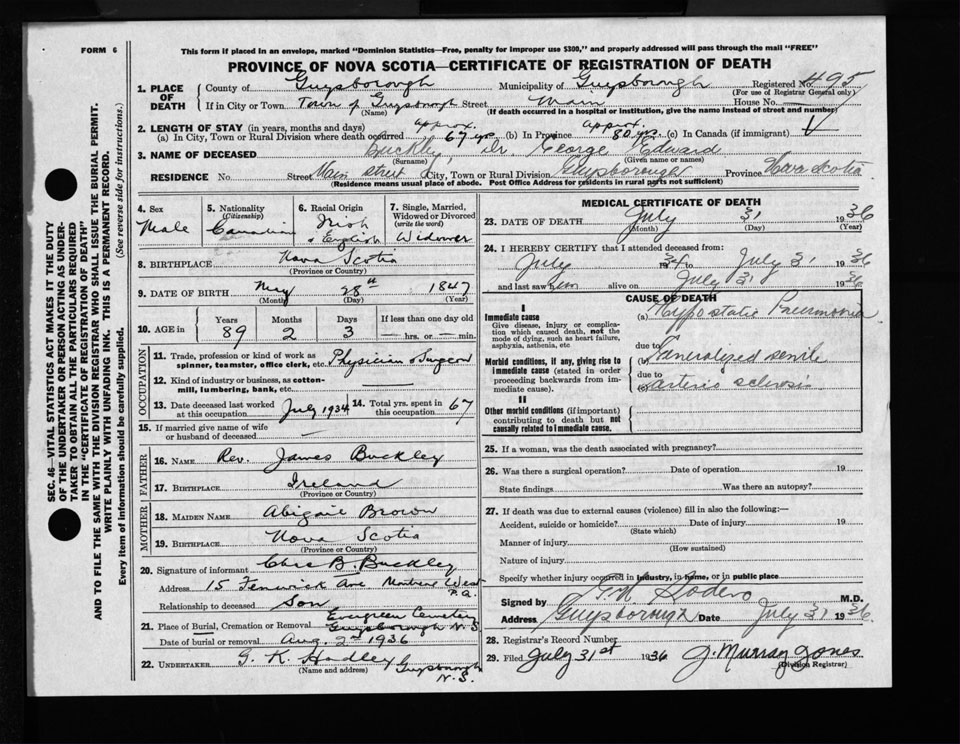 FORM 6
This form if placed in an envelope, marked "Dominion Statistics—Free, penalty for improper use $300," and properly addressed will pass through the mail "FREE"
PROVINCE OF NOVA SCOTIA—CERTIFICATE OF REGISTRATION OF DEATH
1. PLACE OF DEATH
County of Guysborough Municipality of Guysborough Registered No. 495
(For use of Registrar General only)
If in City or Town Town of Guysborough Street Main House No. —
(Name) (If death occurred in a hospital or institution, give the name instead of street and number)
2. LENGTH OF STAY (in years, months and days)
(a) In City, Town or Rural Division where death occurred approx. 67 yrs. (b) In Province approx. 80 yrs. (c) In Canada (if immigrant)
3. NAME OF DECEASED Buckley, Dr. George Edward
(Surname) (Given name or names)
RESIDENCE No. Street Main Street City, Town or Rural Division Guysborough Province Nova Scotia
(Residence means usual place of abode. Post Office Address for residents in rural parts not sufficient)
4. Sex
Male
5. Nationality
(Citizenship)
Canadian
6. Racial Origin
Irish & English
7. Single, Married, Widowed or Divorced
(write the word)
Widower
8. BIRTHPLACE Nova Scotia
(Province or Country)
9. DATE OF BIRTH May 28th 1847
(Month) (Day) (Year)
10. AGE in
Years Months Days If less than one day old
89 2 3 — hrs. or — min.
OCCUPATION
11. Trade, profession or kind of work as spinner, teamster, office clerk, etc. Physician & Surgeon
12. Kind of industry or business, as cotton-mill, lumbering, bank, etc. —
13. Date deceased last worked at this occupation July 1934
14. Total yrs. spent in this occupation 67
15. If married give name of wife or husband of deceased —
FATHER
16. NAME Rev. James Buckley
17. BIRTHPLACE Ireland
(Province or Country)
MOTHER
18. MAIDEN NAME Abigail Brown
19. BIRTHPLACE Nova Scotia
(Province or Country)
20. Signature of informant Chas B. Buckley
Address 15 Fenwick Ave Montreal West P.Q.
Relationship to deceased Son
21. Place of Burial, Cremation or Removal Evergreen Cemetery Guysborough N.S.
Date of burial or removal Aug. 2nd 1936
22. UNDERTAKER G. K. Hadley Guysborough N.S.
(Name and address)
MEDICAL CERTIFICATE OF DEATH
23. DATE OF DEATH July 31 1936
(Month) (Day) (Year)
24. I HEREBY CERTIFY that I attended deceased from:
July 1934 to July 31 1936
and last saw him alive on July 31 1936
CAUSE OF DEATH
I
Immediate cause
Give disease, injury or complication which caused death, not the mode of dying, such as heart failure, asphyxia, asthenia, etc
(a) Hypostatic Pneumonia
due to
Morbid conditions, if any, giving rise to immediate cause (stated in order proceeding backwards from immediate cause).
(b) Generalized senile
due to
(c) arterio sclerosis
II
Other morbid conditions (if important) contributing to death but not causally related to immediate cause.
25. If a woman, was the death associated with pregnancy?
26. Was there a surgical operation? Date of operation 19
State findings Was there an autopsy?
27. If death was due to external causes (violence) fill in also the following:—
Accident, suicide or homicide? Date of injury 19
(State which)
Manner of injury
(How sustained)
Nature of injury
Specify whether injury occurred in industry, in home, or in public place
Signed by Sodero M.D.
Address Guysborough Date July 31 1936
28. Registrar's Record Number
29. Filed July 31st 1936 J. Murray Jones
(Division Registrar)
SEC. 46—VITAL STATISTICS ACT MAKES IT THE DUTY
OF THE UNDERTAKER OR PERSON ACTING AS UNDER-
TAKER TO OBTAIN ALL THE PARTICULARS REQUIRED
IN THE "CERTIFICATE OF REGISTRATION OF DEATH"
AND TO FILE THE SAME WITH THE DIVISION REGISTRAR WHO SHALL ISSUE THE BURIAL PERMIT.
WRITE PLAINLY WITH UNFADING INK. THIS IS A PERMANENT RECORD.
Every item of information should be carefully supplied. (See reverse side for instructions.)